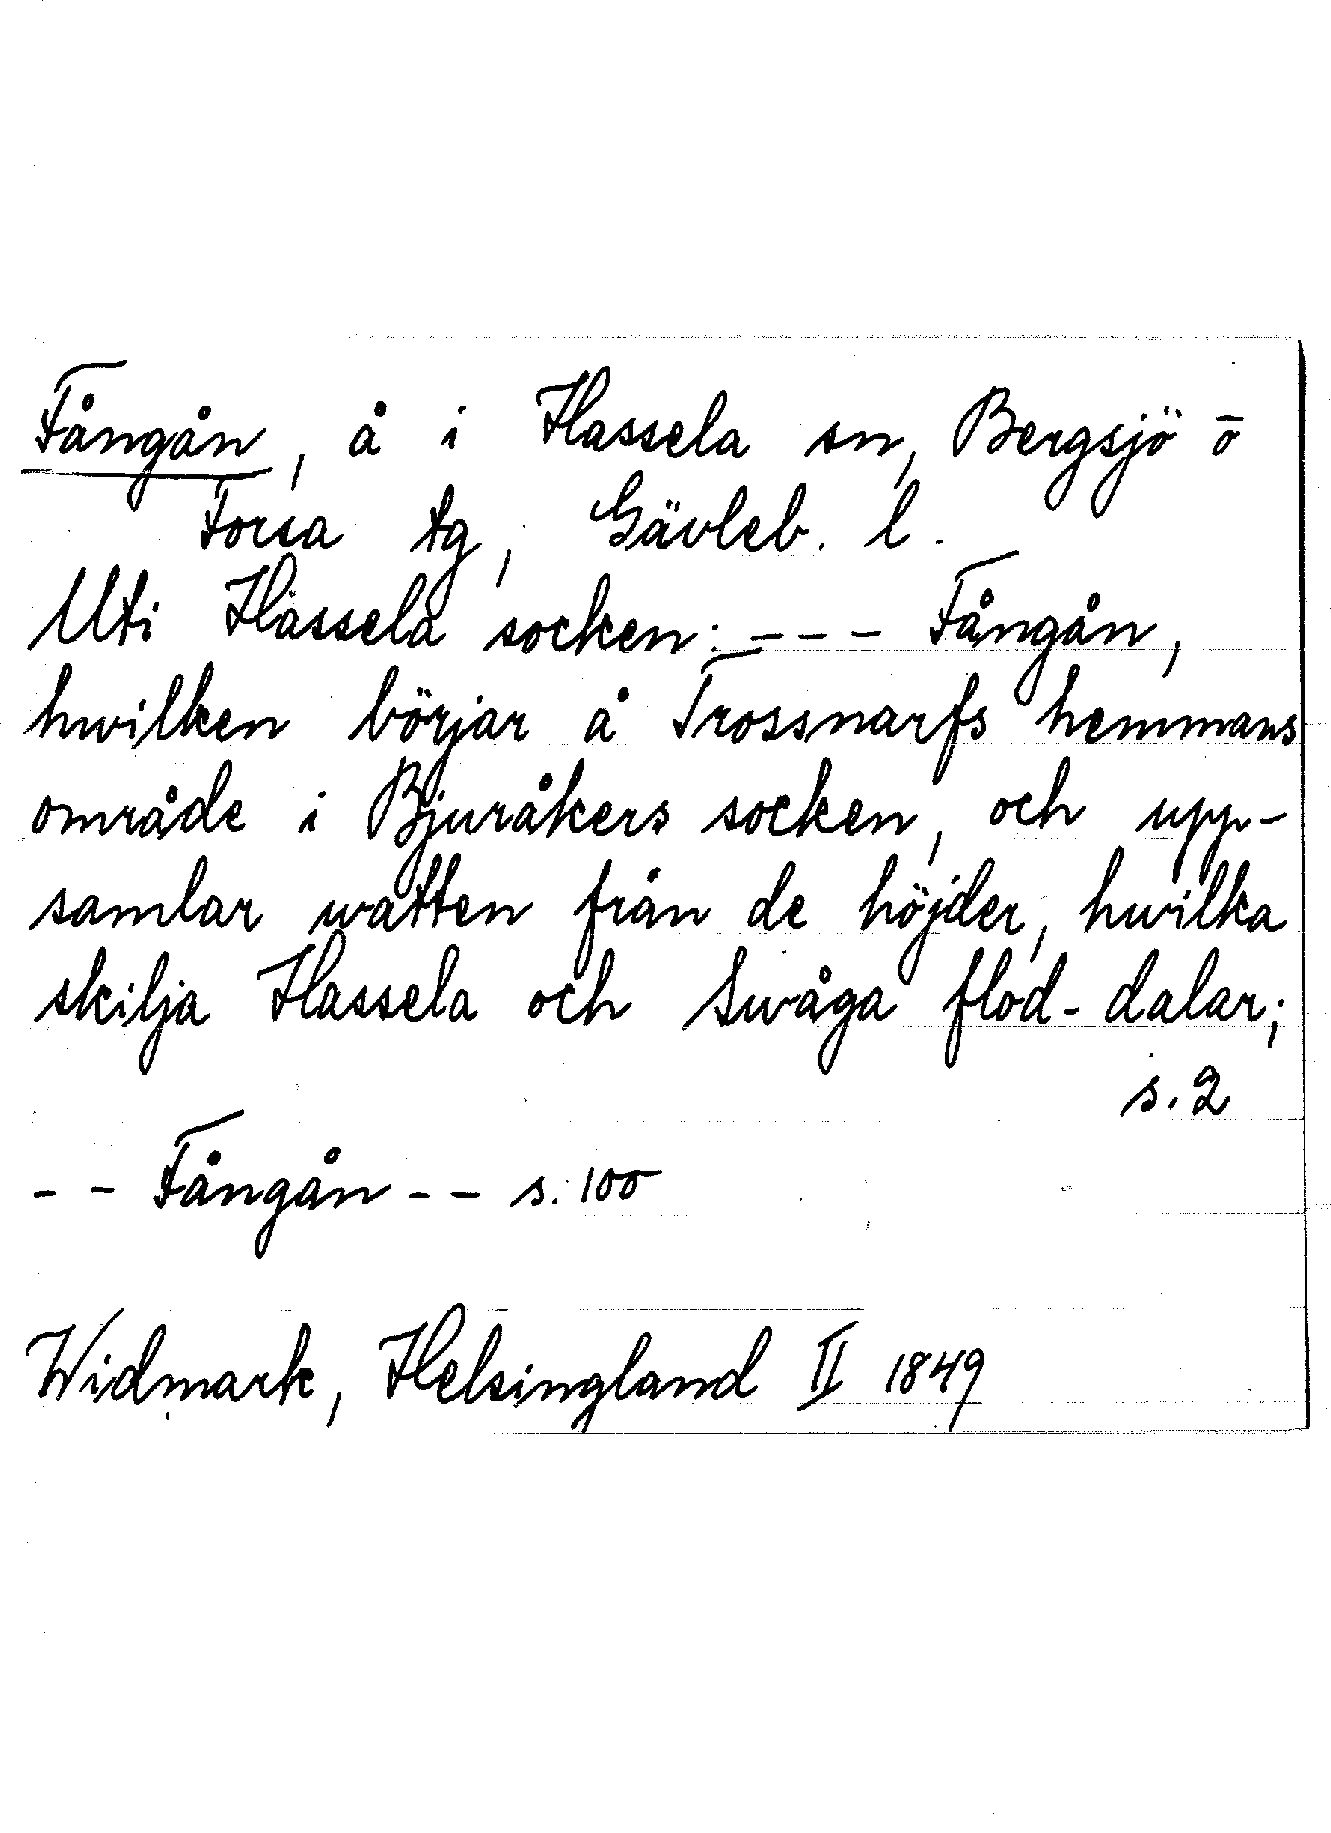 Fångån, å i Hassela sn, Bergsjö o
Forsa tg, Gävleb. l.
Uti Hassela socken: --- Fångån,
hwilken börjar å Trossnarfs hemmans
område i Bjuråkers socken, och upp-
samlar watten från de höjder, hwilka
skilja Hassela och Swåga flod-dalar;
s. 2
-- Fångån -- s. 100
Widmark, Helsingland II 1849